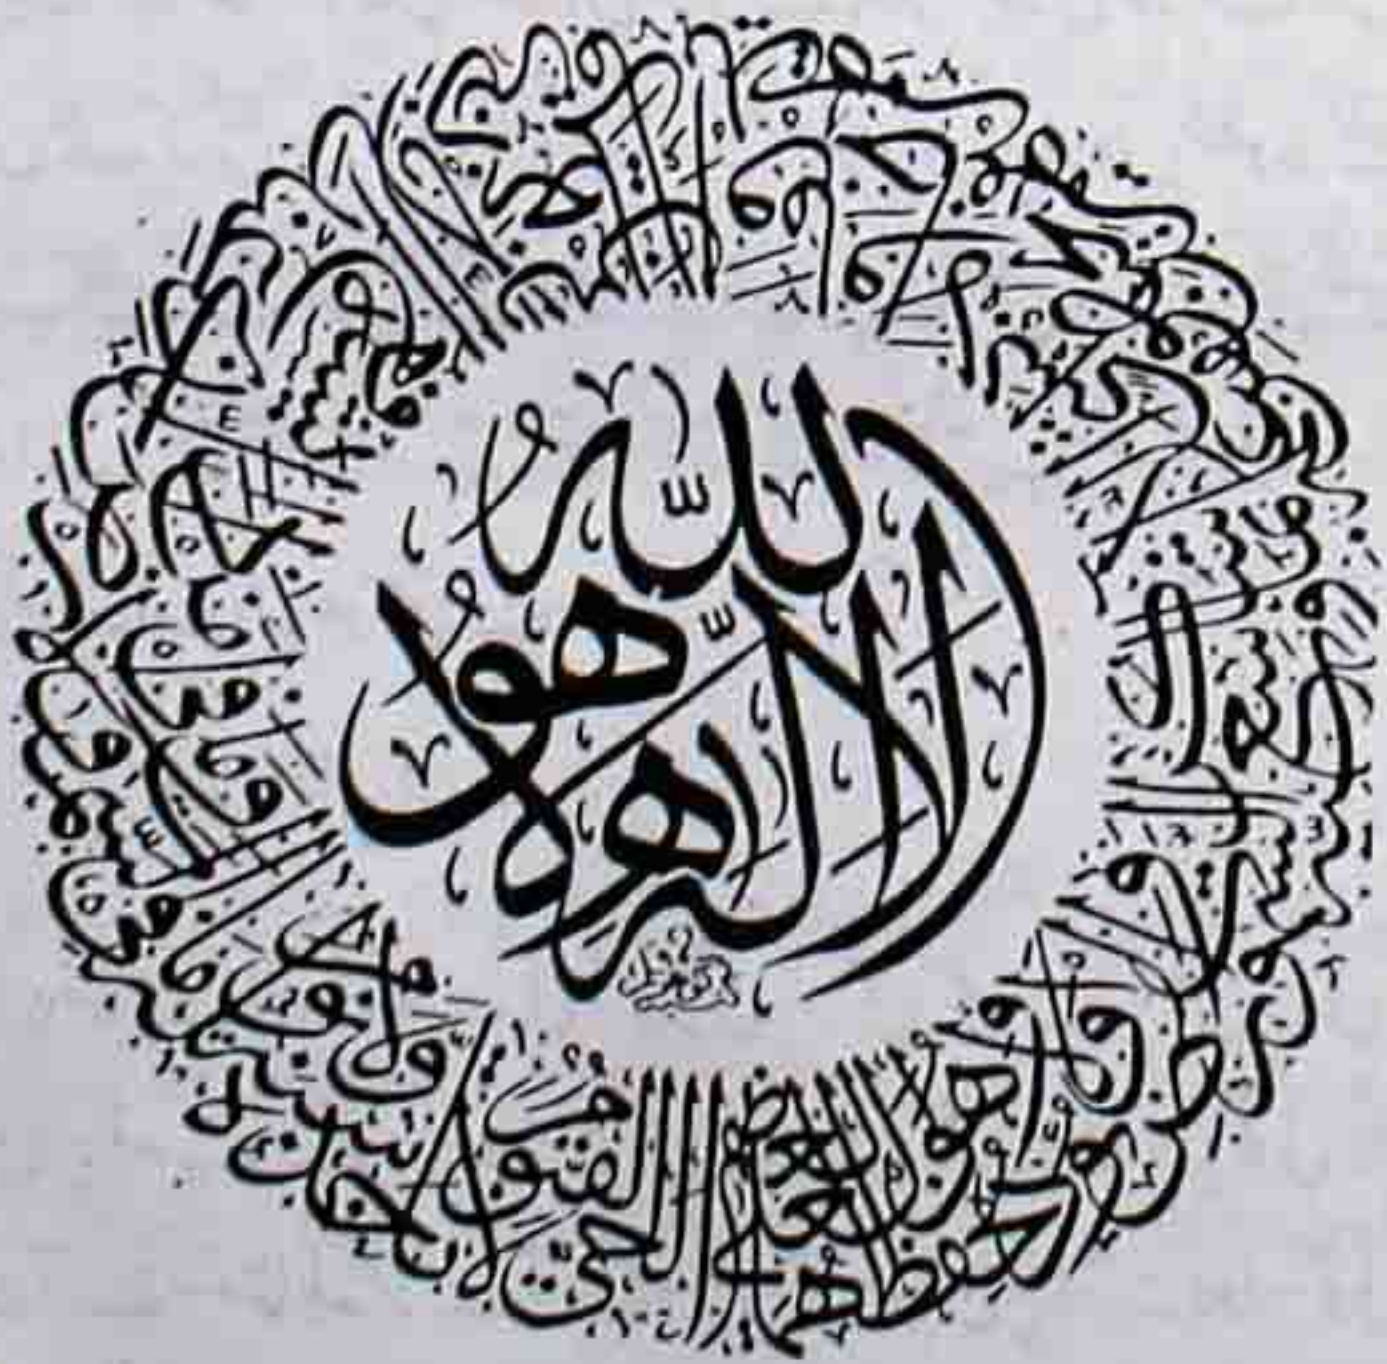 الله لا إله إلا هو
الحي القيوم لا تأخذه سنة ولا نوم له ما في السموات وما في الأرض من ذا الذي يشفع عنده إلا بإذنه يعلم ما بين أيديهم وما خلفهم ولا يحيطون بشيء من علمه إلا بما شاء وسع كرسيه السموات والأرض ولا يؤده حفظهما وهو العلي العظيم